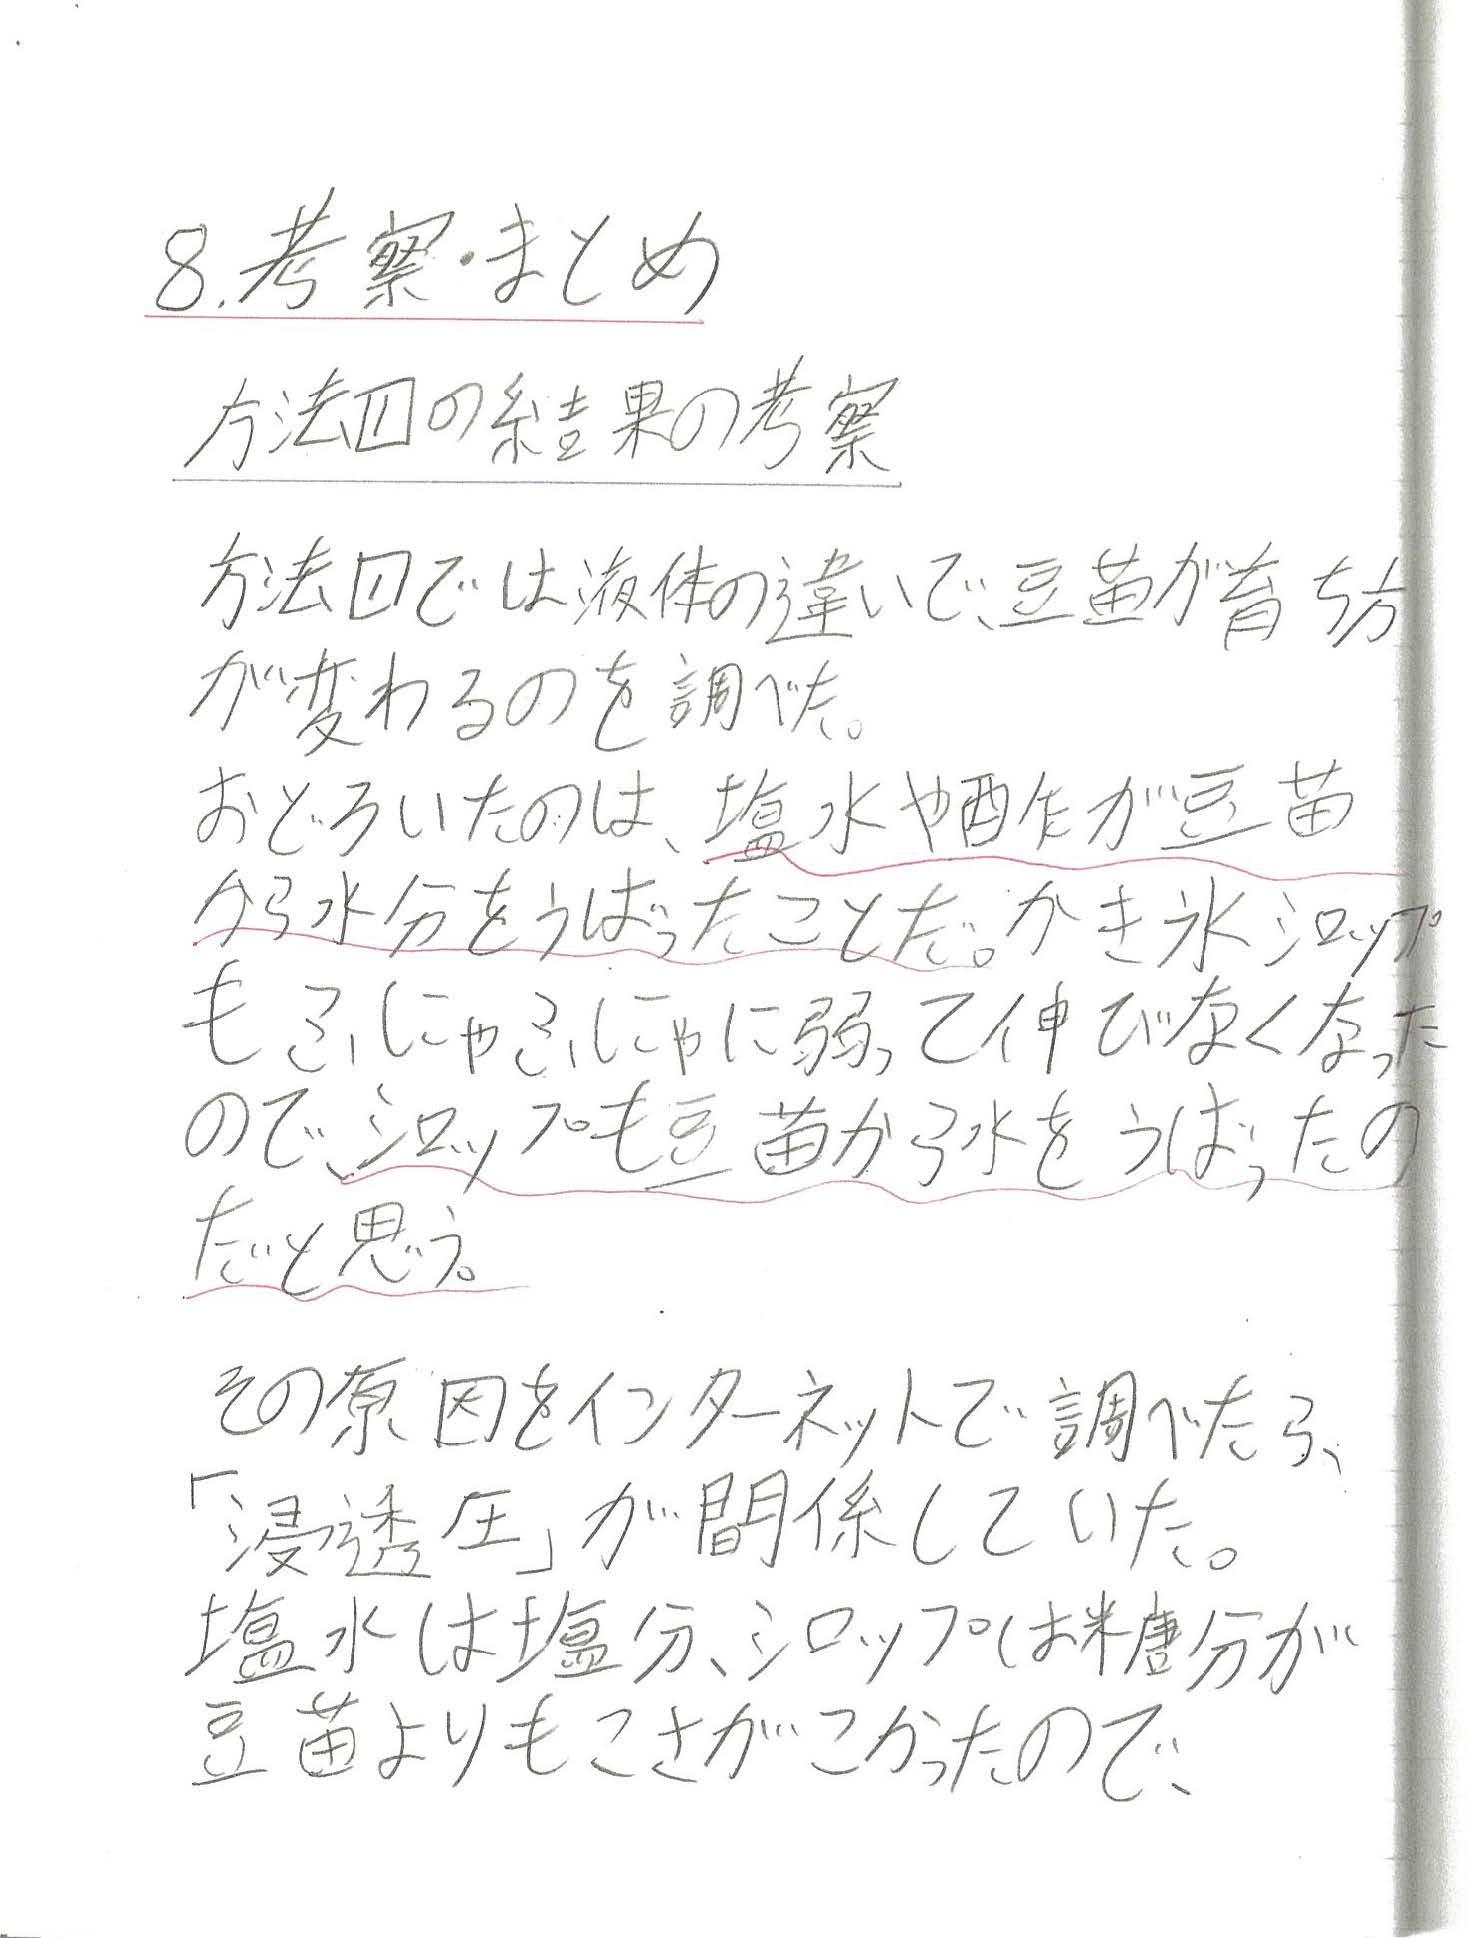 8.考察・まとめ
方法1の結果の考察
方法1では液体の違いで、豆苗が育ち方
が変わるのを調べた。
おどろいたのは、塩水や酢が豆苗
から水分をうばったことだ。かき氷シロップ
もふにゃふにゃに弱って伸びなくなった
ので、シロップも豆苗から水をうばったの
だと思う。
その原因をインターネットで調べたら、
「浸透圧」が関係していた。
塩水は塩分、シロップは糖分が
豆苗よりもこさがこかったので、